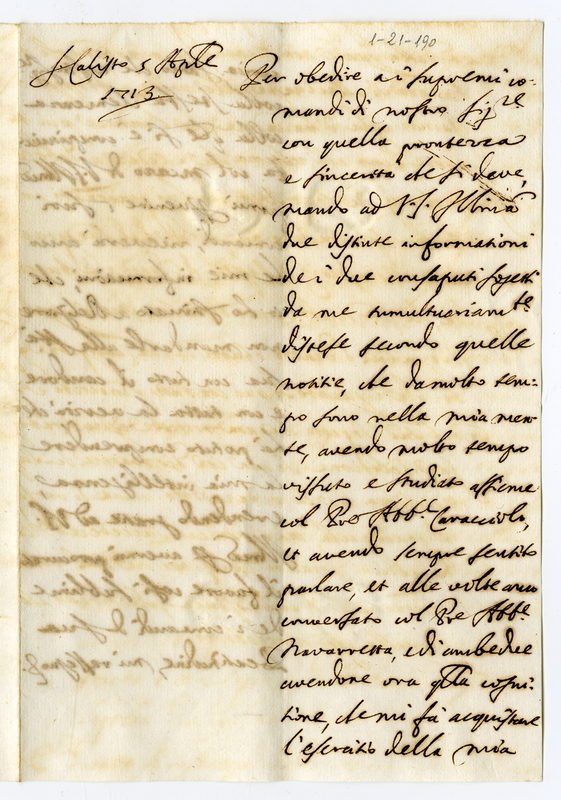 1-21-190
S. Calisto 5 Aprile
1713
Per obedire a i supremi co-
mandi di nostro Sig.re
con quella prontezza
e sincerità che si deve,
mando ad V.S. Ill.ma
due distinte informationi
de i due consaputi sogetti
da me tumultuariam.te
distese secondo quelle
notitie, che da molto tem-
po sono nella mia men-
te, avendo molto tempo
vissuto e studiato assieme
col Pre Abb.e Caracciolo,
et avendo sempre sentito
parlare, et alle volte anco
conversato col Pre Abb.e
Navarretta, e di ambedue
avendone ora q.lla cogni-
tione, che mi fà acquistare
l'esercitio della mia